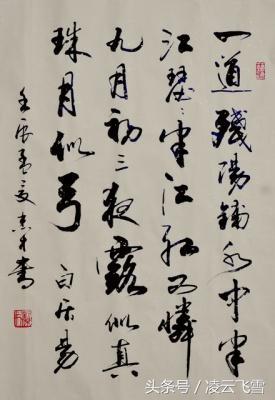 一道殘陽鋪水中半
江瑟々半江紅可憐
九月初三夜露似真
珠月似弓 白居易
壬辰孟夏 書
头条号 / 凌云飞雪